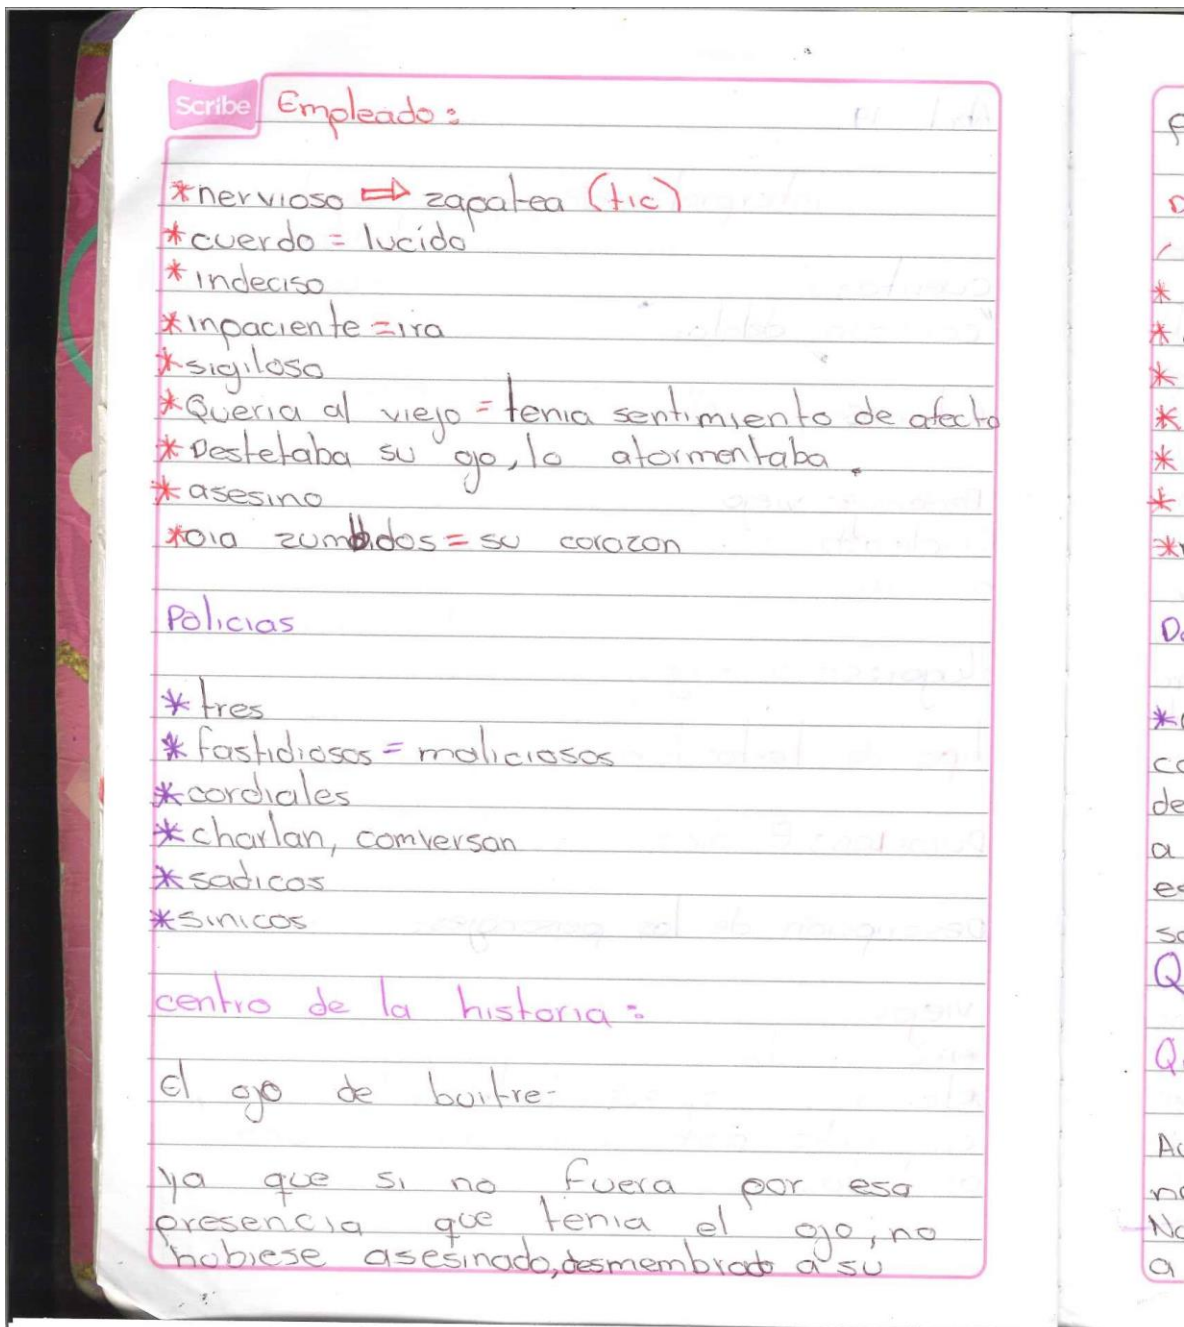 Scribe
Empleado:
*nervioso ⇨ zapatea (tic)
*cuerdo = lucido
*indeciso
*inpaciente = ira
*sigiloso
*Queria al viejo = tenia sentimiento de afecto
*Destetaba su ojo, lo atormentaba.
*asesino
*oia zumbidos = su corazon
Policias
*tres
*fastidiosos = maliciosos
*cordiales
*charlan, comversan
*sadicos
*sinicos
centro de la historia:
el ojo de buitre-
ya que si no fuera por esa
presencia que tenia el ojo, no
hobiese asesinado, desmembrado a su